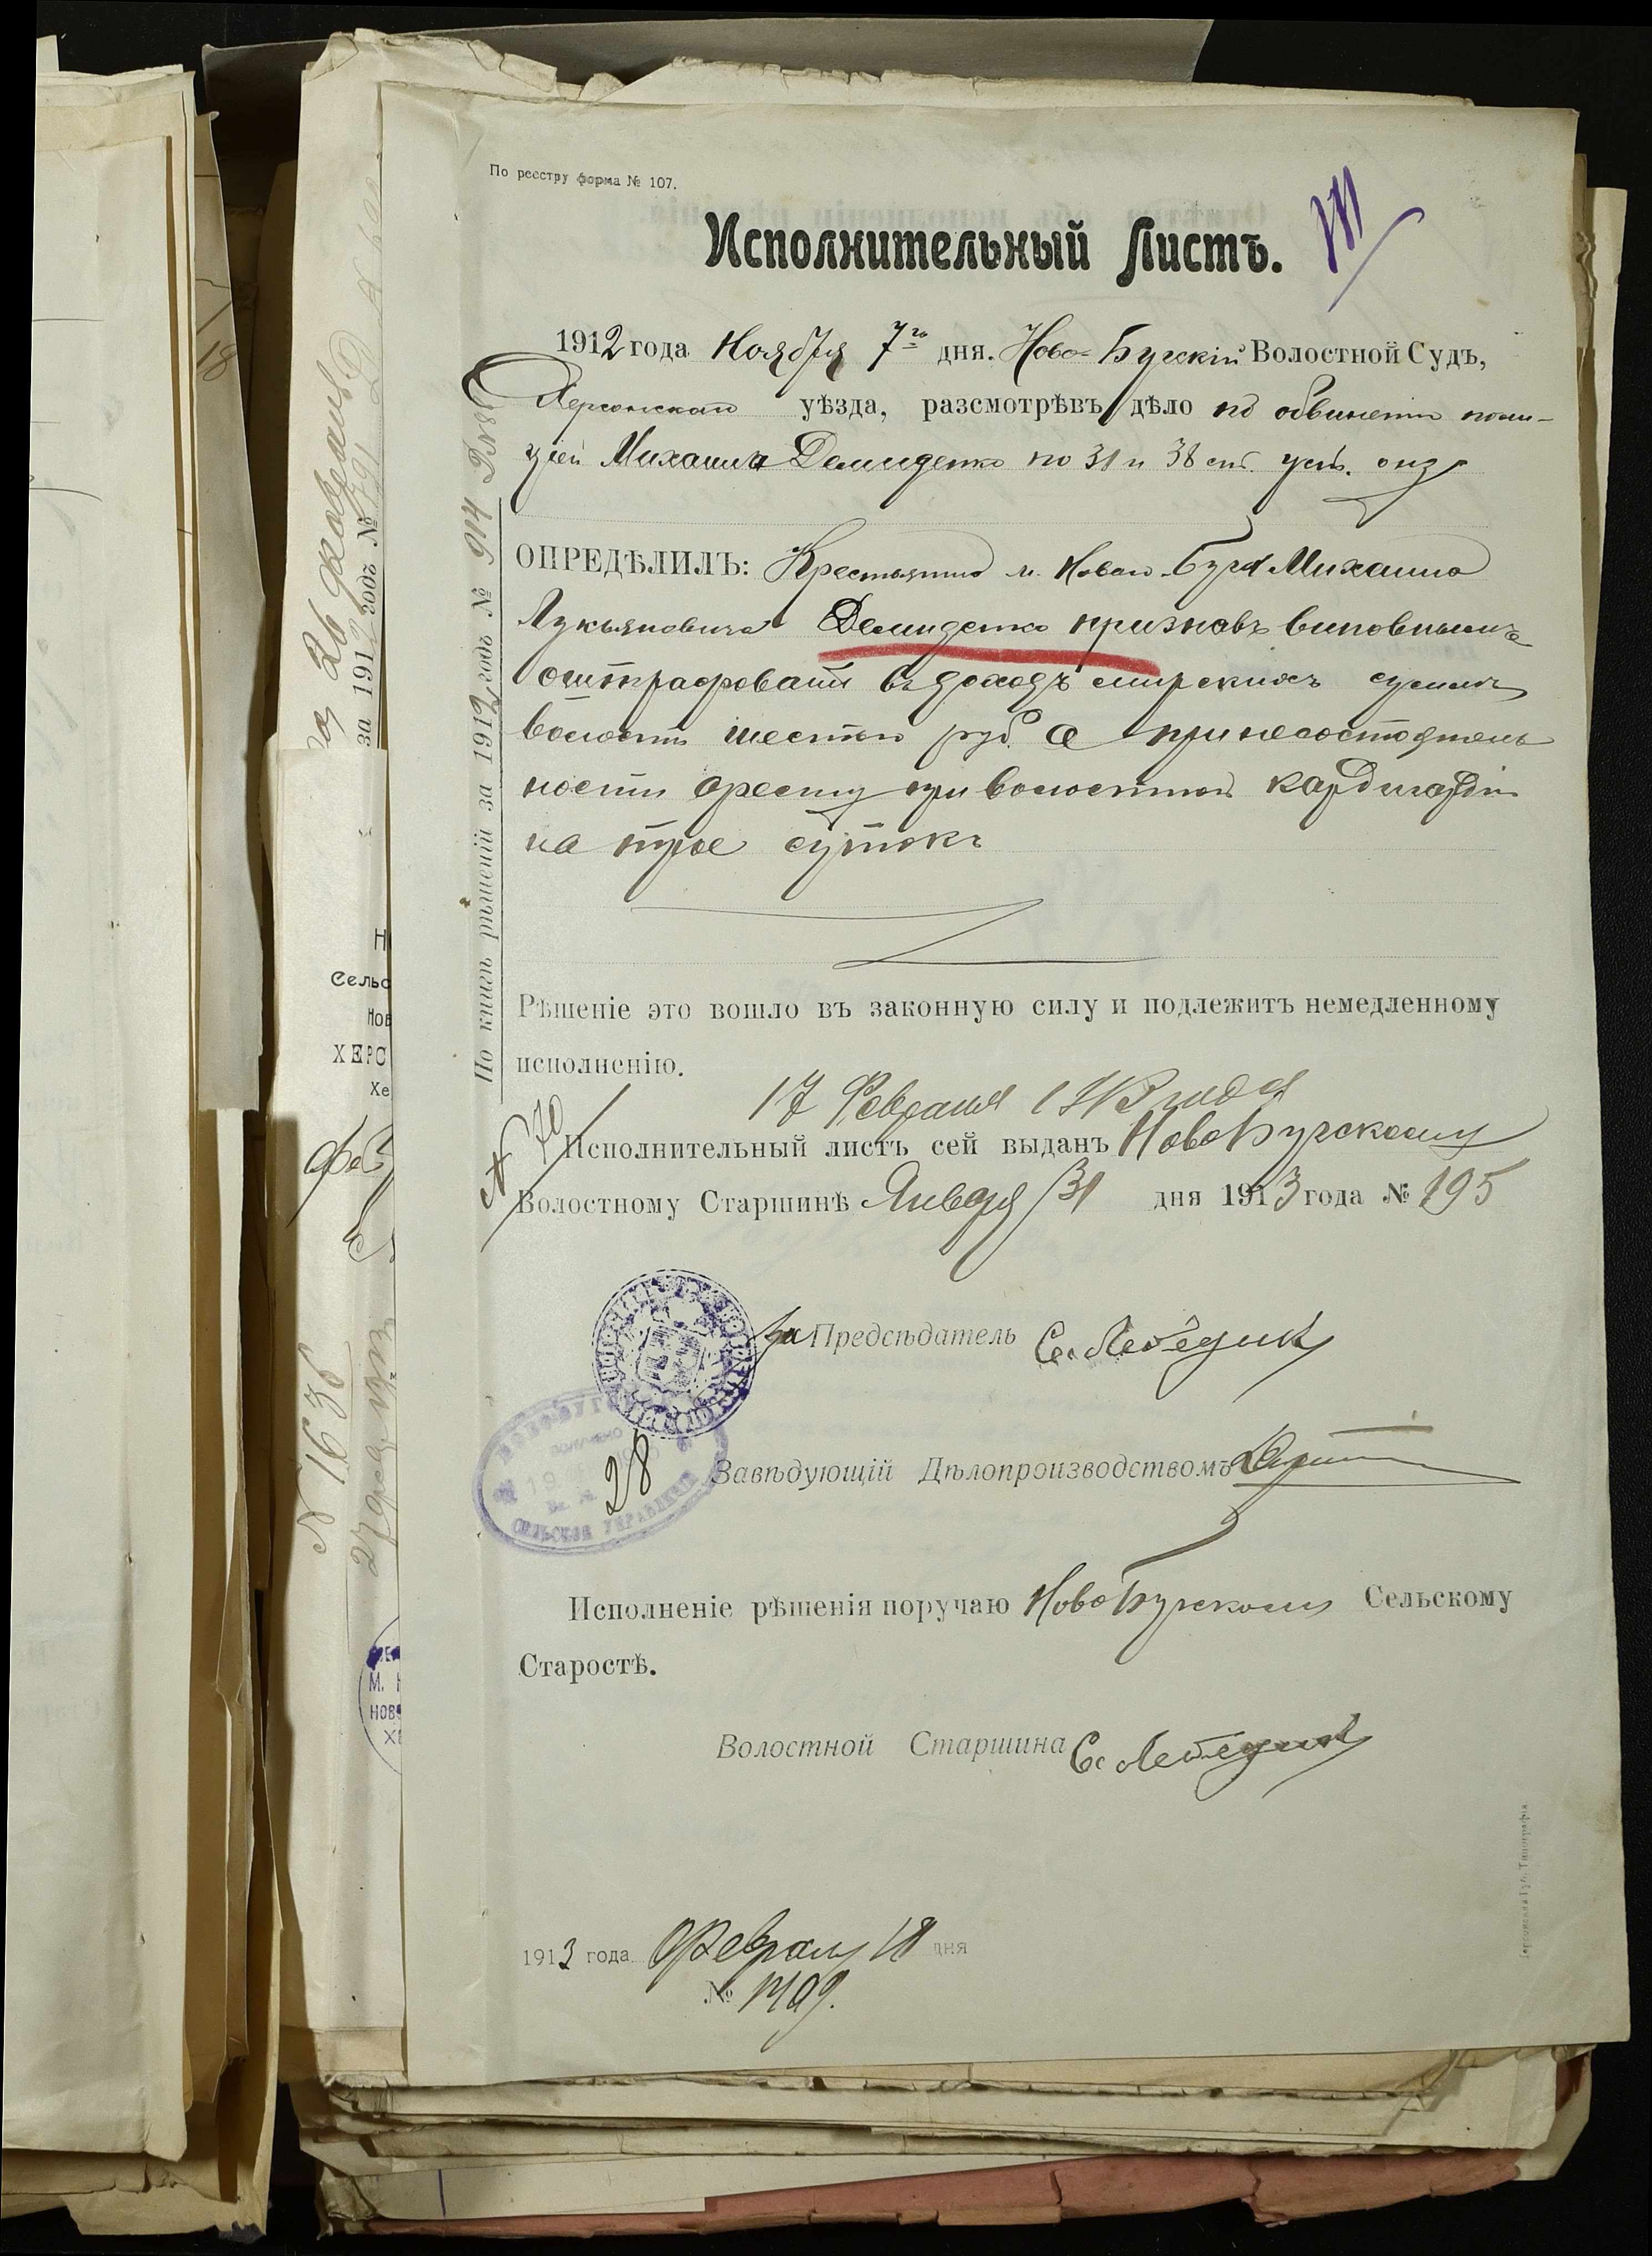 По реестру форма № 107.
Исполнительный Листъ.
1912 года Ноября 7го дня. Ново-Бугскій Волостной Судъ,
Херсонскаго уѣзда, разсмотрѣвъ дѣло по обвиненію поли-
ціей Михаила Демиденко по 31 и 38 ст. уст.
ОПРЕДѢЛИЛЪ: Крестьянина м. Новаго-Буга Михаила
Лукьяновича Демиденко признавъ виновнымъ
оштрафовать въ доходъ мирскихъ суммъ
волости шесть руб. а при несостоятель
ности аресту при волостной кардигардіи
на трое сутокъ
По книгѣ рѣшеній за 1912 годъ № 914
Рѣшеніе это вошло въ законную силу и подлежитъ немедленному
исполненію.
17 Февраля 1913 года
№ 70
Исполнительный листъ сей выданъ НовоБугскому
Волостному Старшинѣ Января 31 дня 1913 года № 195
за Предсѣдатель С. Лебедик
28
СЕЛЬСКОЕ УПРАВЛЕНІЕ
Завѣдующій Дѣлопроизводствомъ
Исполненіе рѣшенія поручаю НовоБугскому Сельскому
Старостѣ.
Волостной Старшина С. Лебедик
1913 года Февраля 18 дня
№ 1409.
Херсонская Губ. Типографія
за 1912 годъ №
Сельс
Нов
ХЕРС
Хе
№ 1636
М. Н
НОВО